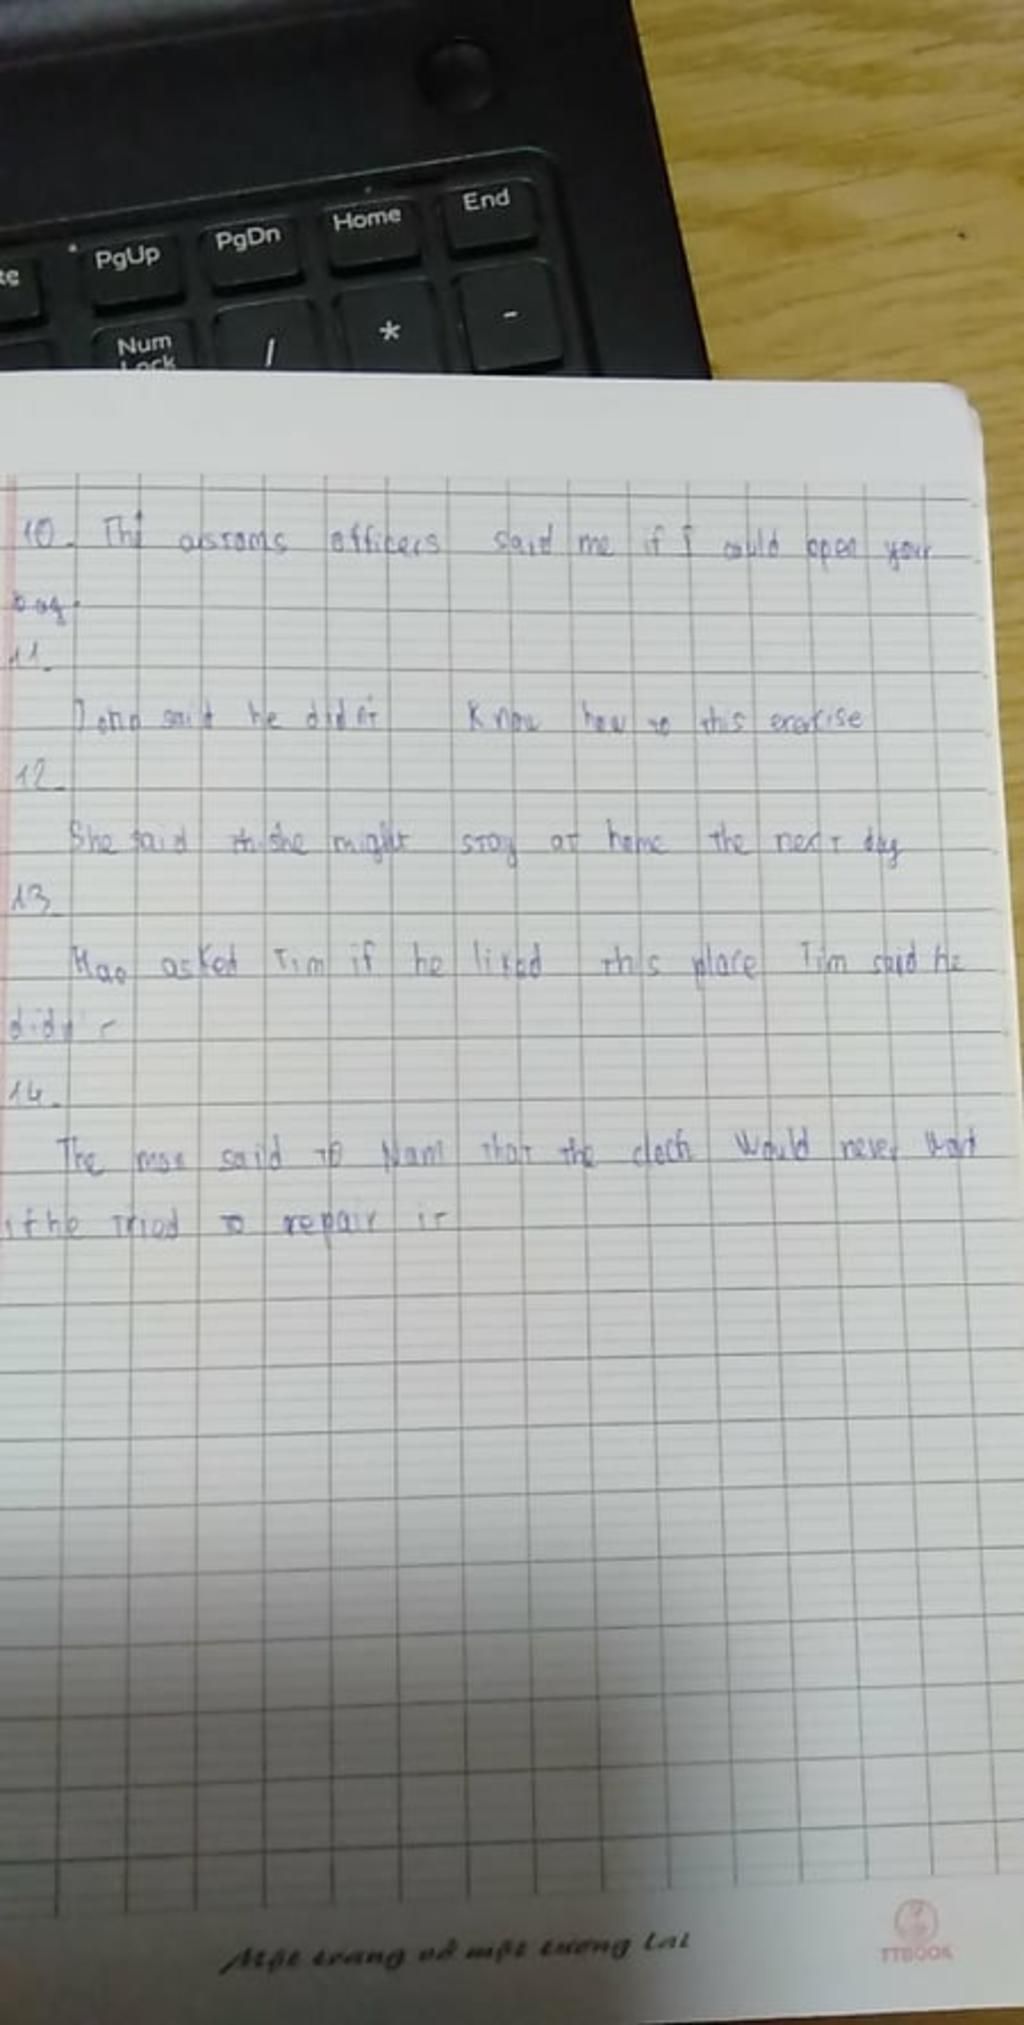 PgUp PgDn Home End
Num Lock / * -
10. The customs officers said me if I could open your
bag.
11.
said he didn't Know how to this exercise
12.
She said she might stay at home the next day
13.
Hao asked Tim if he liked this place Tim said he
didn't
14.
The man said to Nam that the clock would never
if he tried to repair it
Một trang vở một tương lai
TTBOOK